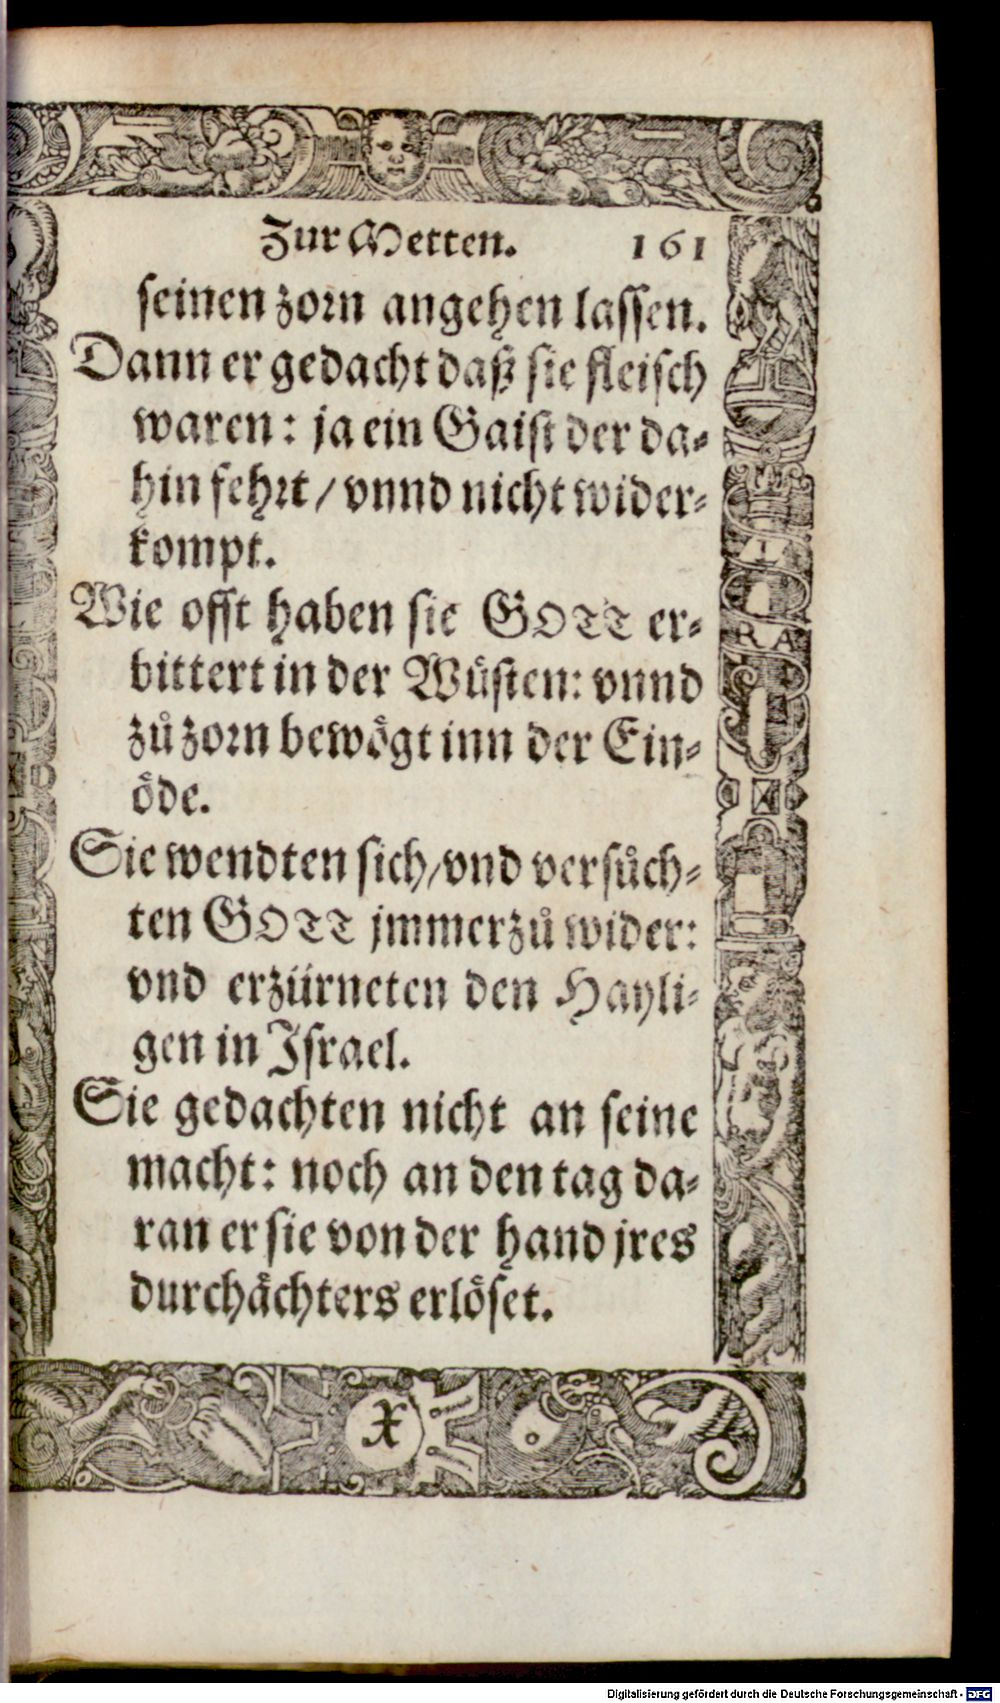 Zur Metten. 161
seinen zorn angehen lassen.
Dann er gedacht daß sie fleisch
waren: ja ein Gaist der da-
hin fehrt / vnnd nicht wider-
kompt.
Wie offt haben sie GOTT er-
bittert in der Wüsten: vnnd
zů zorn bewögt inn der Ein-
öde.
Sie wendten sich, vnd versůch-
ten GOTT jmmerzů wider:
vnd erzürneten den Hayli-
gen in Israel.
Sie gedachten nicht an seine
macht: noch an den tag da-
ran er sie von der hand jres
durchächters erlöset.
X
Digitalisierung gefördert durch die Deutsche Forschungsgemeinschaft - DFG